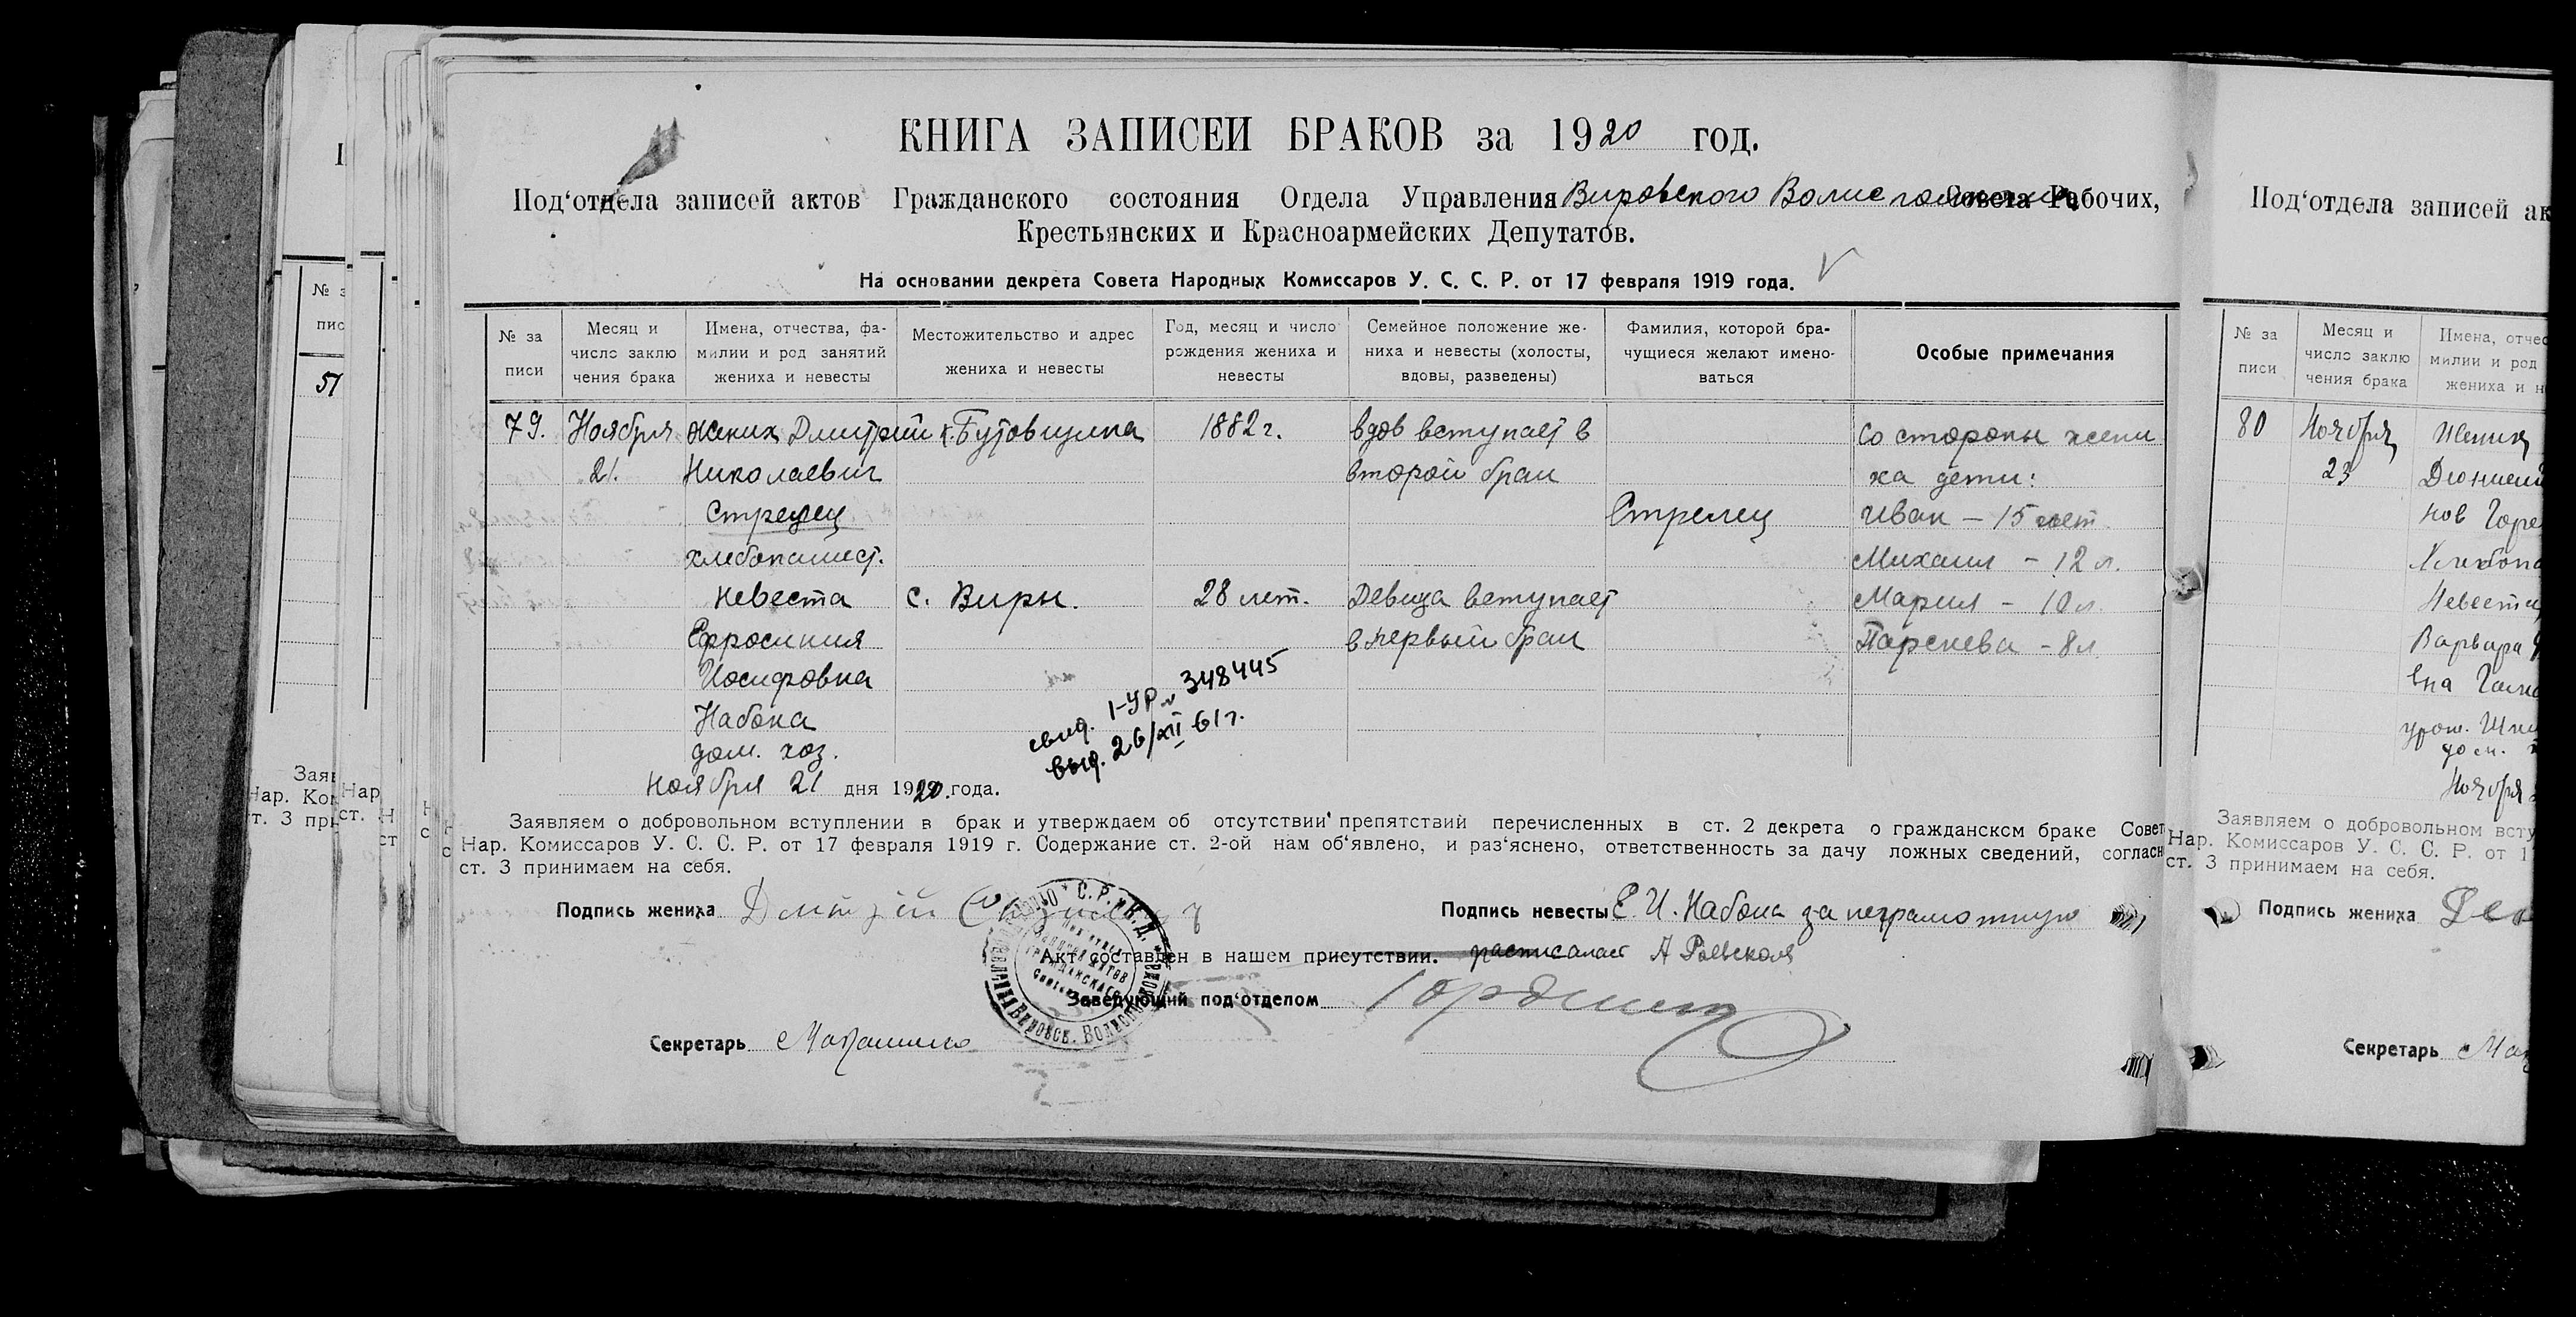 КНИГА ЗАПИСЕЙ БРАКОВ за 1920 год.
Под‘отдела записей актов Гражданского состояния Отдела Управления Вировского Совета Рабочих,
Крестьянских и Красноармейских Депутатов.
На основании декрета Совета Народных Комиссаров У. С. С. Р. от 17 февраля 1919 года.
№ за писи
Месяц и число заклю чения брака
Имена, отчества, фа- милии и род занятий жениха и невесты
Местожительство и адрес жениха и невесты
Год, месяц и число рождения жениха и невесты
Семейное положение же- ниха и невесты (холосты, вдовы, разведены)
Фамилия, которой бра- чущиеся желают имено- ваться
Особые примечания
79. Ноября жених Дмитрий х. Бутовщина 1882 г. вдов вступает в со стороны жени
21. Николаевич второй брак ха дети:
Стрелец Стрелец Иван – 15 лет
хлебопашест. Михаил – 12 л.
невеста с. Виры. 28 лет. Девица вступает Мария – 10 л.
Ефросиния в первый брак Парскева – 8 л
Иосифовна
Набока
дом. хоз.
свид. I-УР № 348445
выд. 26/XII 61 г.
Ноября 21 дня 1920 года.
Заявляем о добровольном вступлении в брак и утверждаем об отсутствии препятствий перечисленных в ст. 2 декрета о гражданском браке Совет
Нар. Комиссаров У. С. С. Р. от 17 февраля 1919 г. Содержание ст. 2-ой нам об‘явлено, и раз‘яснено, ответственность за дачу ложных сведений, согласн
ст. 3 принимаем на себя.
Подпись жениха Дмитрій Стрилец
Подпись невесты Е. И. Набока за неграмотную
Акт составлен в нашем присутствии. расписалась А
Заведующий под‘отделом
Секретарь
№ з
пис
51
Заяв
Нар. Ком
ст. 3 при
Под‘отдела записей ак
№ за писи
Месяц и число заклю чения брака
Имена, отчес
милии и род
жениха и н
80 Ноября Жених
23 Дионисий
нов Горе
Хлебопа
Невеста
Варвара
Ноября
Заявляем о добровольном всту
Нар. Комиссаров У. С. С. Р. от 1
ст. 3 принимаем на себя.
Подпись жениха
Секретарь